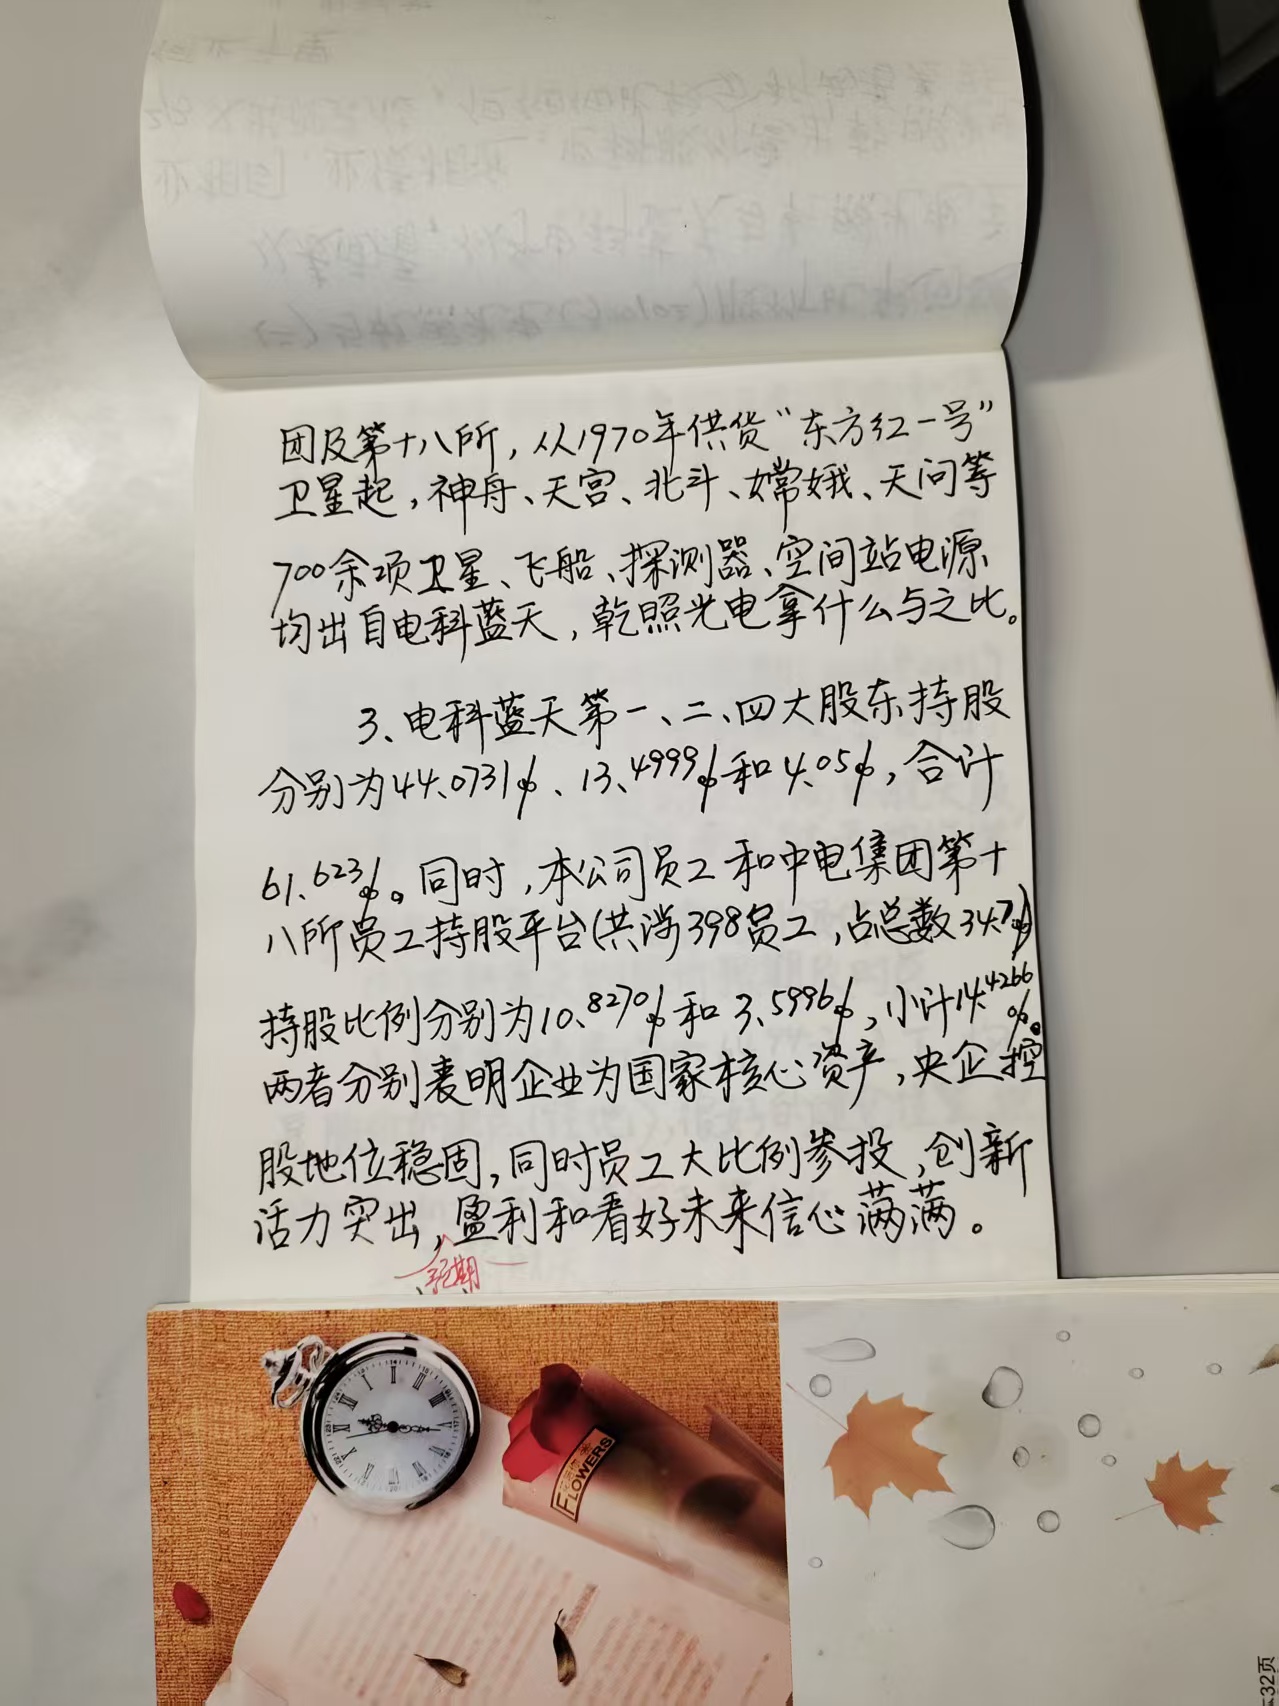 团及第十八所，从1970年供货“东方红一号”
卫星起，神舟、天宫、北斗、嫦娥、天问等
700余项卫星、飞船、探测器、空间站电源
均出自电科蓝天，乾照光电拿什么与之比。
3、电科蓝天第一、二、四大股东持股
分别为44.0731%、13.4999%和4.05%，合计
61.623%。同时，本公司员工和中电集团第十
八所员工持股平台(共涉398员工，占总数34.7%)
持股比例分别为10.8270%和3.5996%，小计14.4266%。
两者分别表明企业为国家核心资产，央企控
股地位稳固，同时员工大比例参投，创新
活力突出，盈利和看好未来信心满满。
预期
FLOWERS
32页